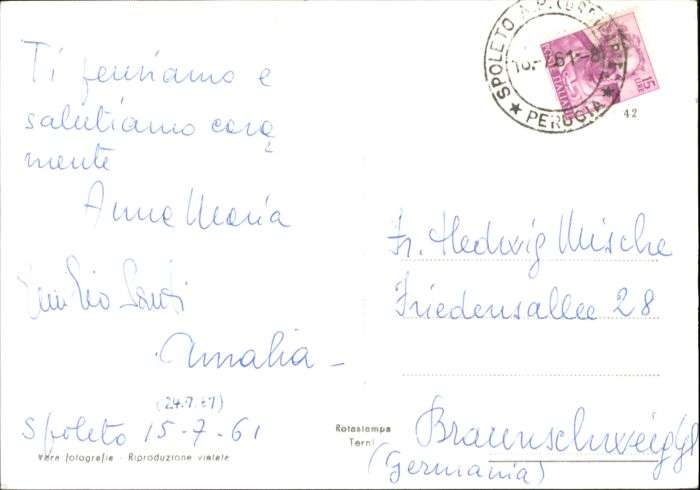 Ti pensiamo e
salutiamo cara
mente
Anna Maria
Emilio Santi
Amalia
(24.7.61)
Spoleto 15-7-61
Vera fotografia - Riproduzione vietata
Rotastampa
Terni
SPOLETO A.P.
PERUGIA
15
LIRE
42
Fr. Hedwig Mische
Friedensallee 28
Braunschweig/
(Germania)